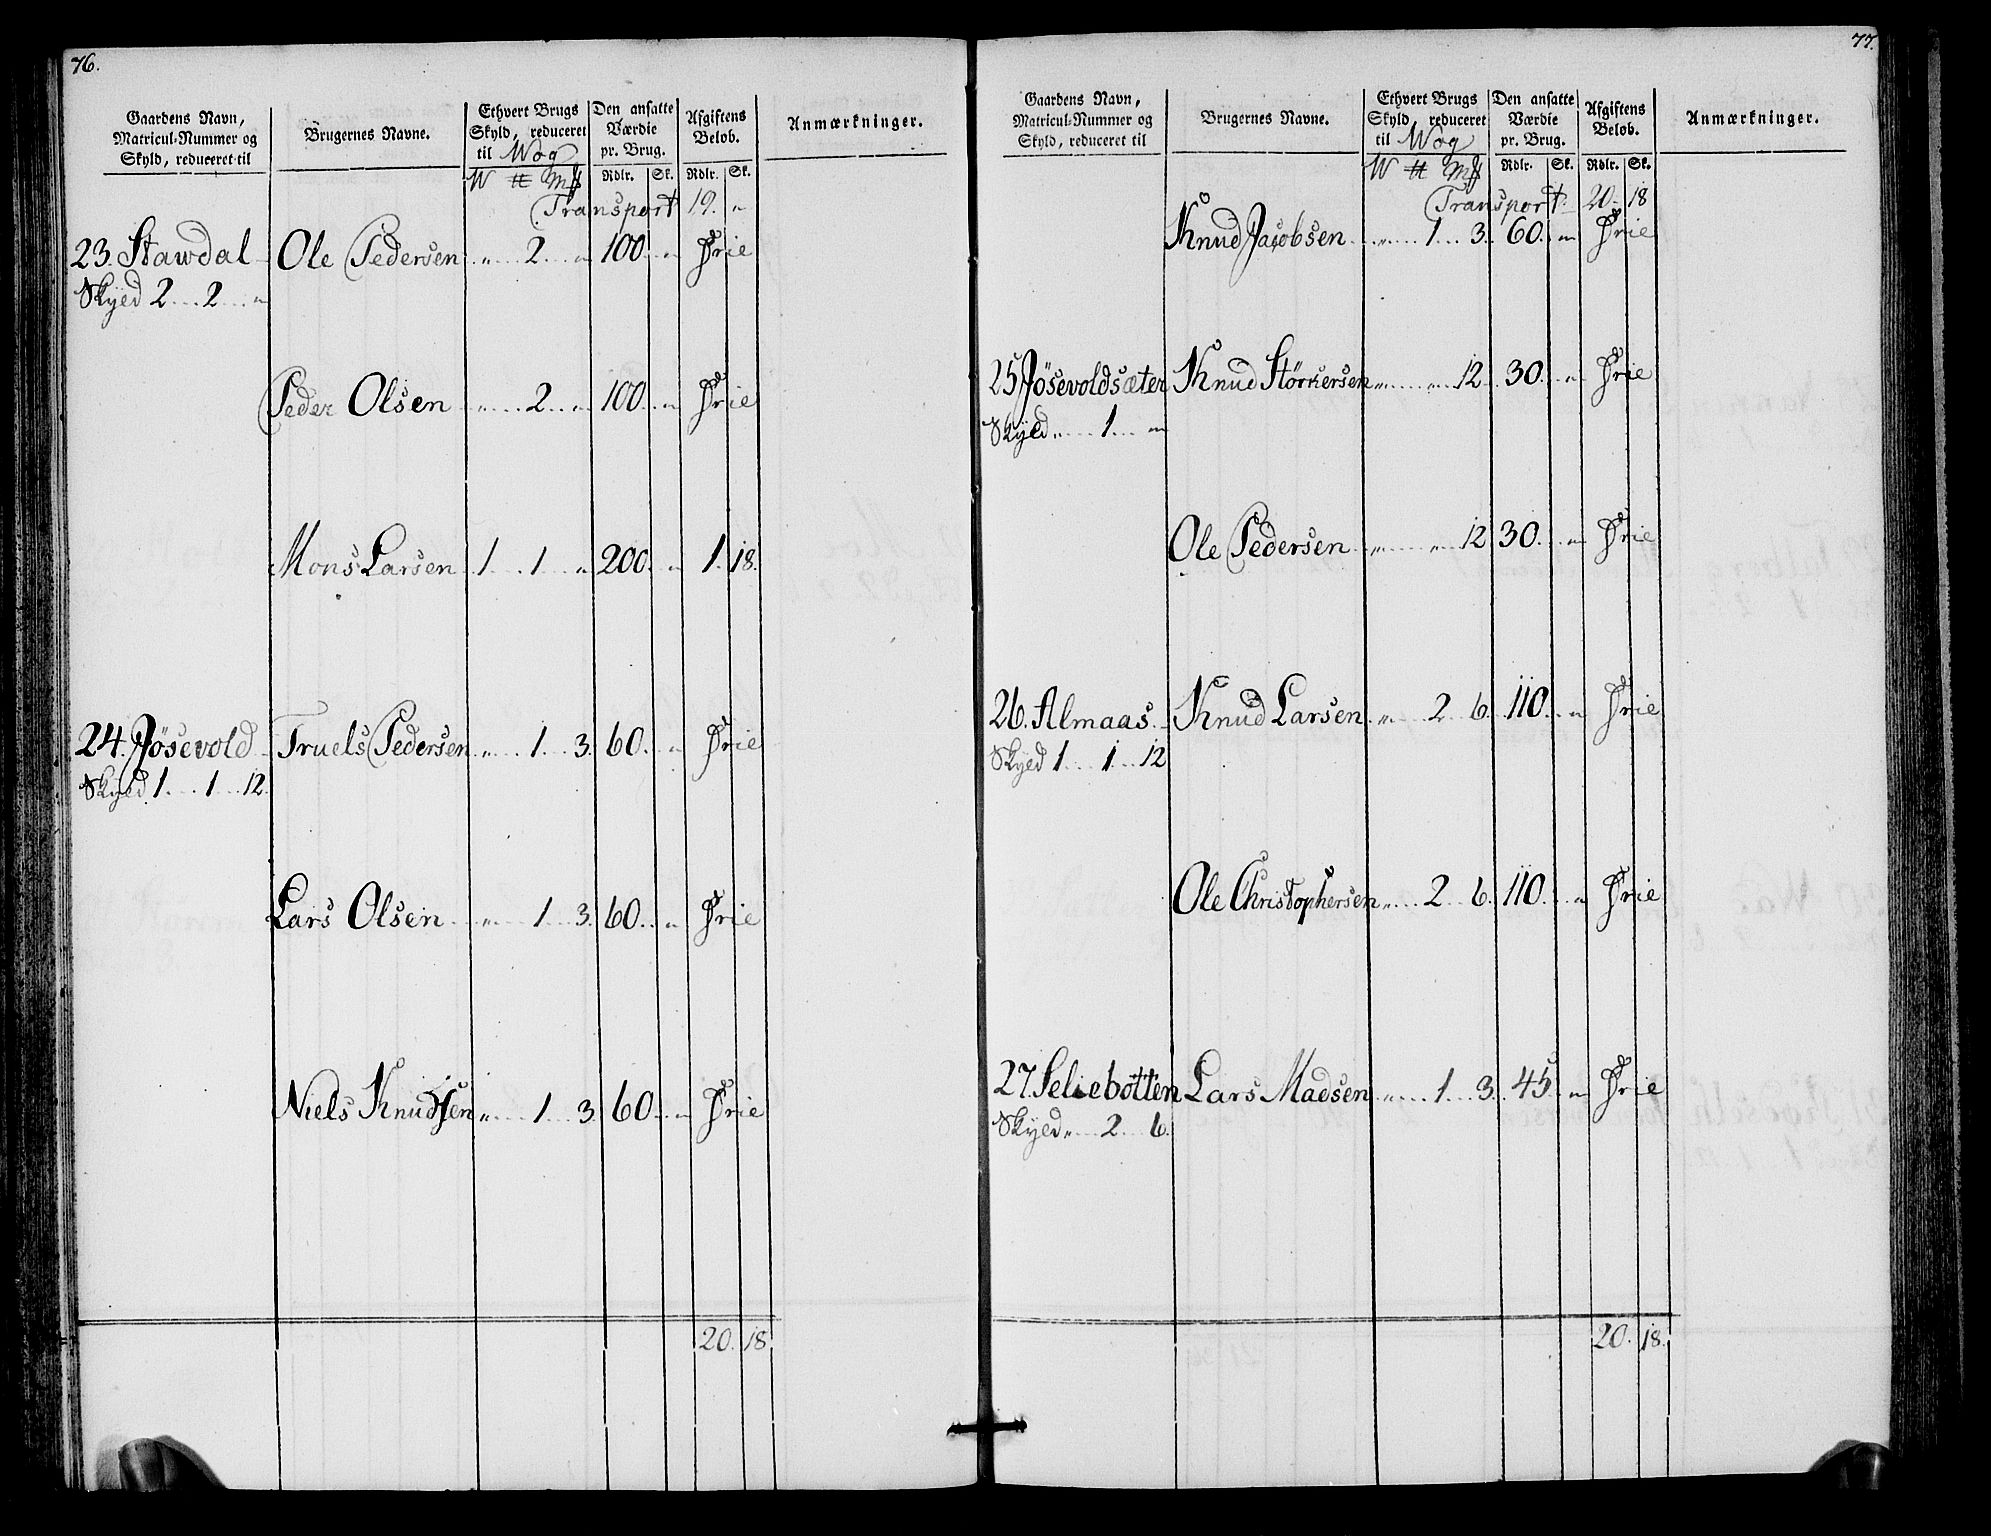 76.
Gaardens Navn, Matricul-Nummer og Skyld, reduceret til | Brugernes Navne. | Ethvert Brugs Skyld, reduceret til Wog | Den ansatte Værdie pr. Brug. | Afgiftens Beløb. | Anmærkninger.
W ℔ Mk | Rdlr. | Sk. | Rdlr. | Sk.
Transport 19. "
23. Stawdal Ole Pedersen " 2 " 100 " Frie
Skyld 2 2 "
Peder Olsen " 2 " 100 " Frie
Mons Larsen 1 1 " 200 " 1. 18.
24. Jösevold Truels Pedersen " 1 3. 60. " Frie
Skyld 1 1 12.
Lars Olsen " 1 3. 60. " Frie
Niels Knudsen " 1 3. 60. " Frie
20. 18.
77.
Gaardens Navn, Matricul-Nummer og Skyld, reduceret til | Brugernes Navne. | Ethvert Brugs Skyld, reduceret til Wog | Den ansatte Værdie pr. Brug. | Afgiftens Beløb. | Anmærkninger.
W ℔ Mk | Rdlr. | Sk. | Rdlr. | Sk.
Transport 20. 18
Knud Jacobsen " 1 3. 60. " Frie
25 Jösevoldsæter Knud Störkersen " " 12. 30. " Frie
Skyld " 1 "
Ole Pedersen " " 12 30. " Frie
26. Almaas Knud Larsen " 2 6. 110. " Frie
Skyld 1 1 12
Ole Christophersen " 2 6. 110. " Frie
27. Seliebotten Lars Madsen " 1 3. 45. " Frie
Skyld " 2 6.
20. 18.